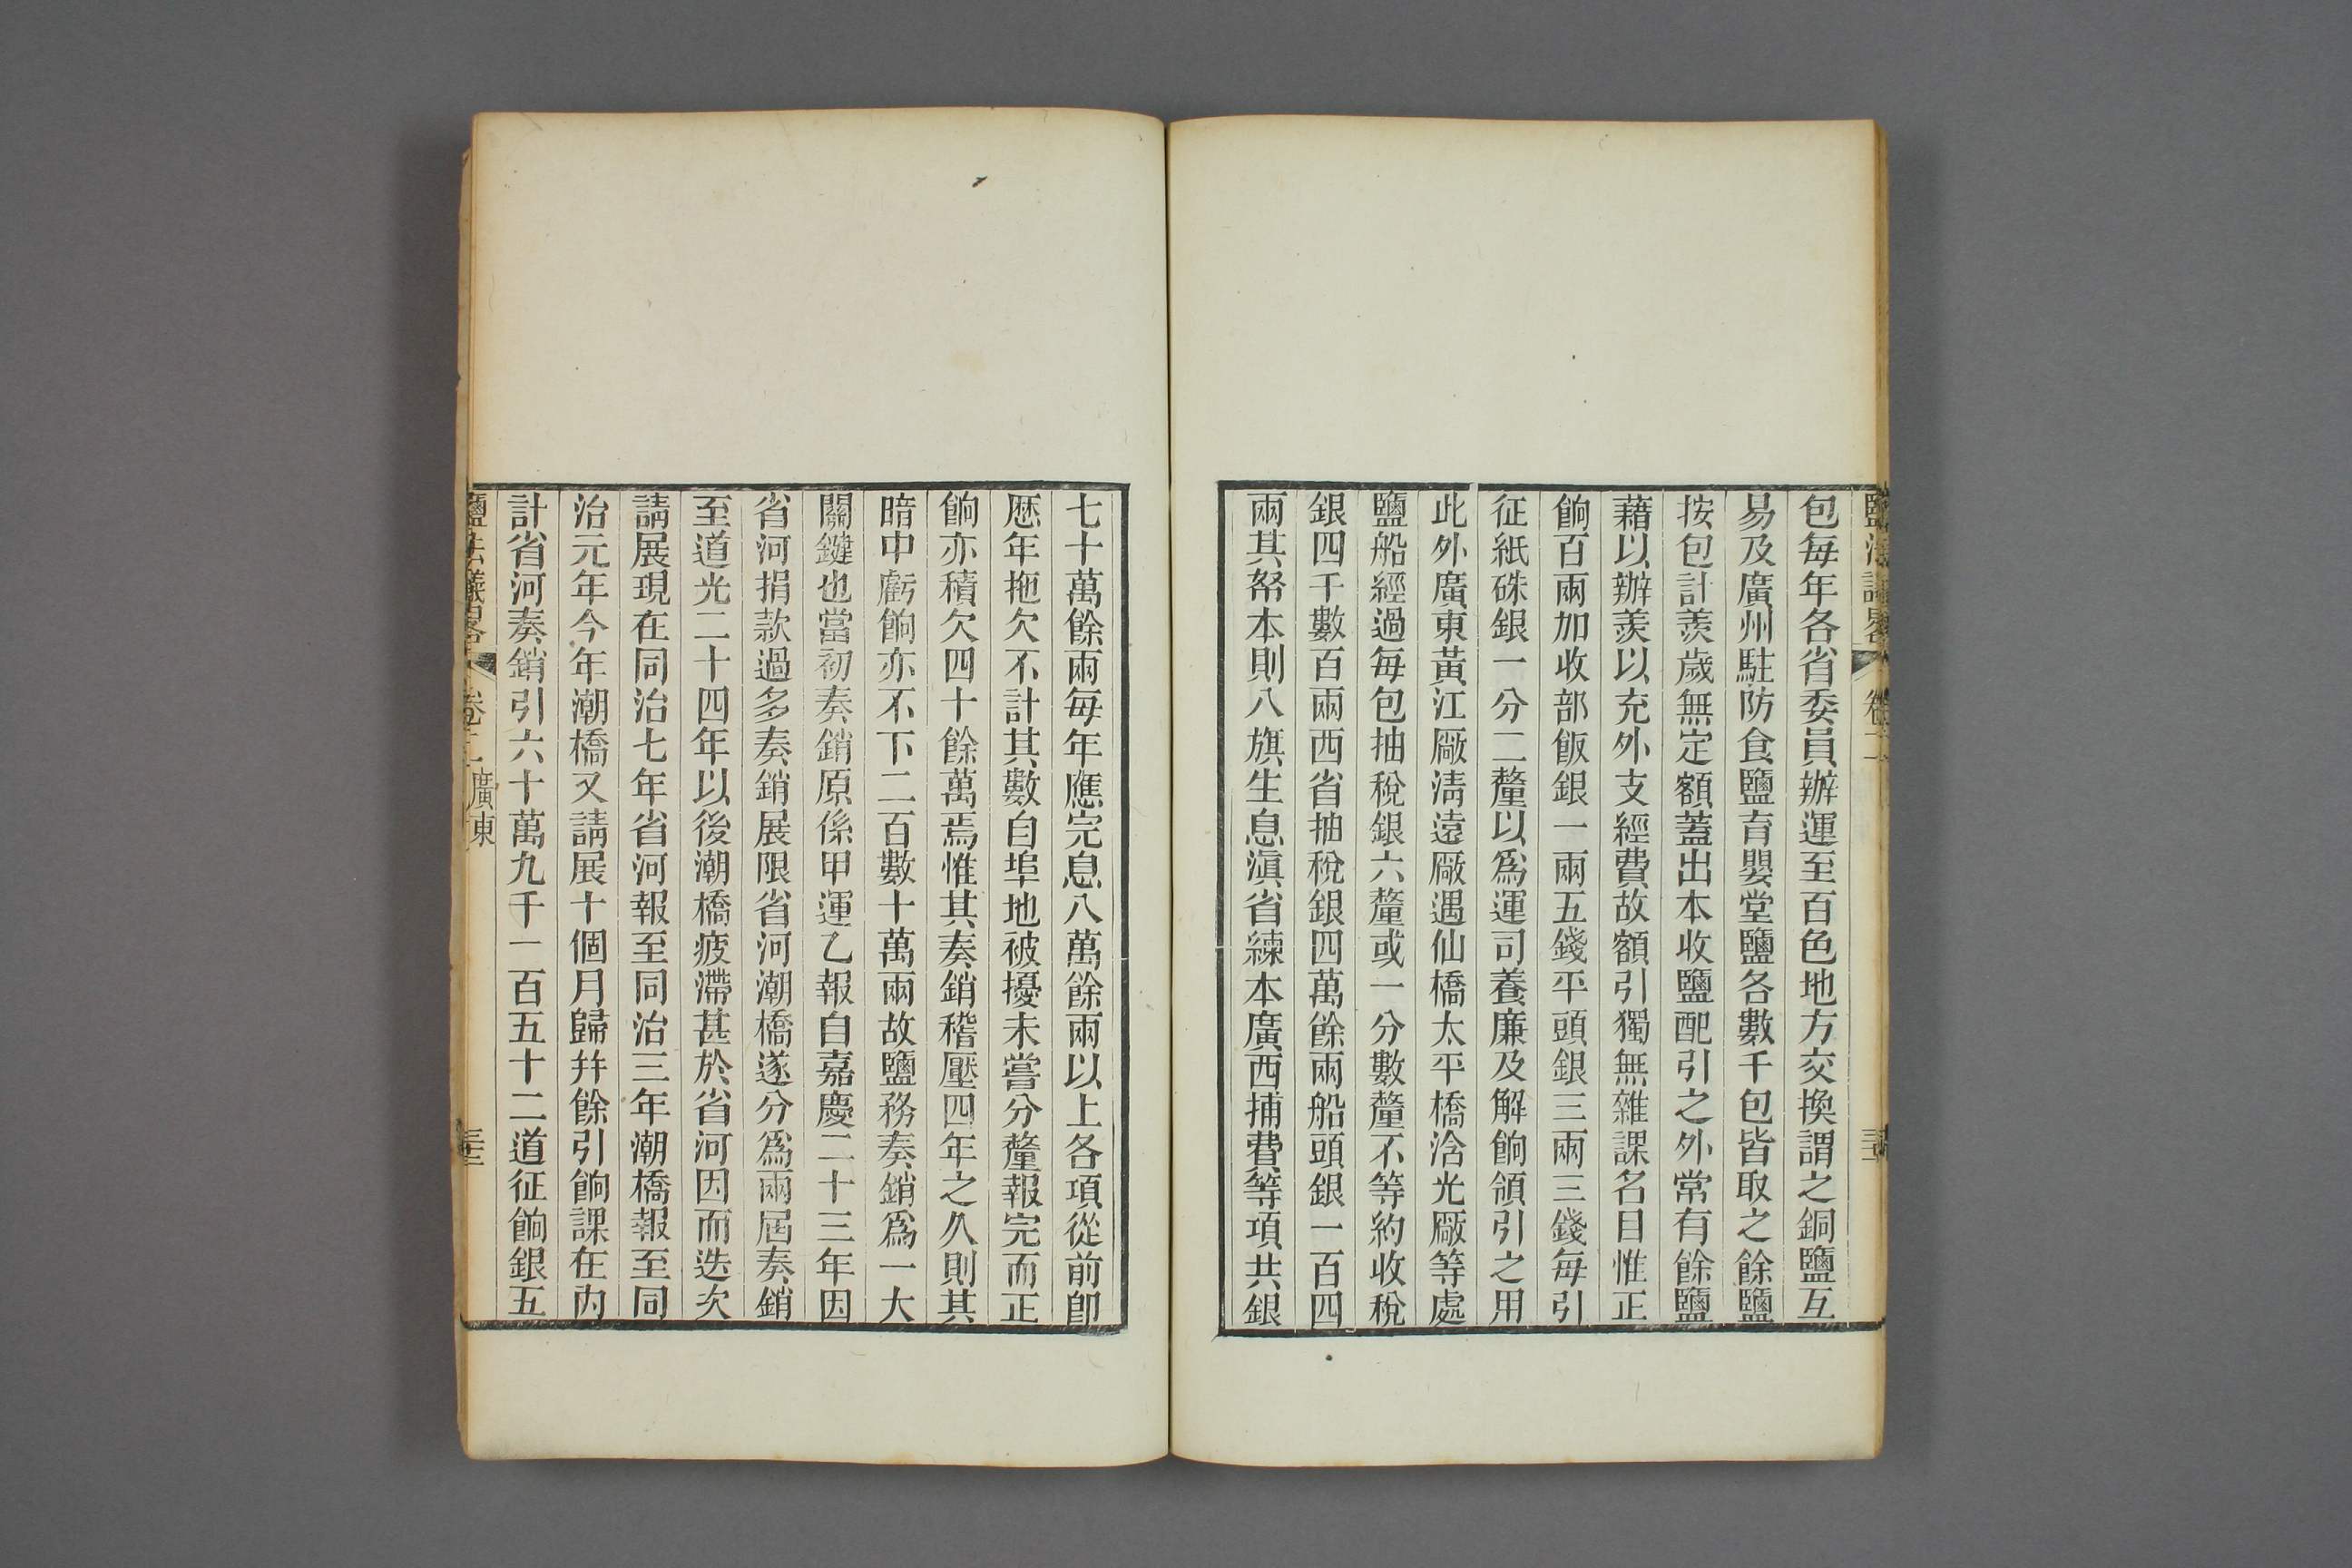 包每年各省委員辦運至百色地方交換謂之銅鹽互
易及廣州駐防食鹽育嬰堂鹽各數千包皆取之餘鹽
按包計羨歲無定額蓋出本收鹽配引之外常有餘鹽
藉以辦羨以充外支經費故額引獨無雜課名目惟正
餉百兩加收部飯銀一兩五錢平頭銀三兩三錢每引
征紙硃銀一分二釐以爲運司養廉及解餉領引之用
此外廣東黃江廠清遠廠遇仙橋太平橋浛光廠等處
鹽船經過每包抽稅銀六釐或一分數釐不等約收稅
銀四千數百兩西省抽稅銀四萬餘兩船頭銀一百四
兩其帑本則八旗生息滇省練本廣西捕費等項共銀
七十萬餘兩每年應完息八萬餘兩以上各項從前卽
歷年拖欠不計其數自埠地被擾未嘗分釐報完而正
餉亦積欠四十餘萬焉惟其奏銷稽壓四年之久則其
暗中虧餉亦不下二百數十萬兩故鹽務奏銷爲一大
關鍵也當初奏銷原係甲運乙報自嘉慶二十三年因
省河捐款過多奏銷展限省河潮橋遂分爲兩屆奏銷
至道光二十四年以後潮橋疲滯甚於省河因而迭次
請展現在同治七年省河報至同治三年潮橋報至同
治元年今年潮橋又請展十個月歸幷餘引餉課在內
計省河奏銷引六十萬九千一百五十二道征餉銀五
鹽法議畧
卷二 廣東